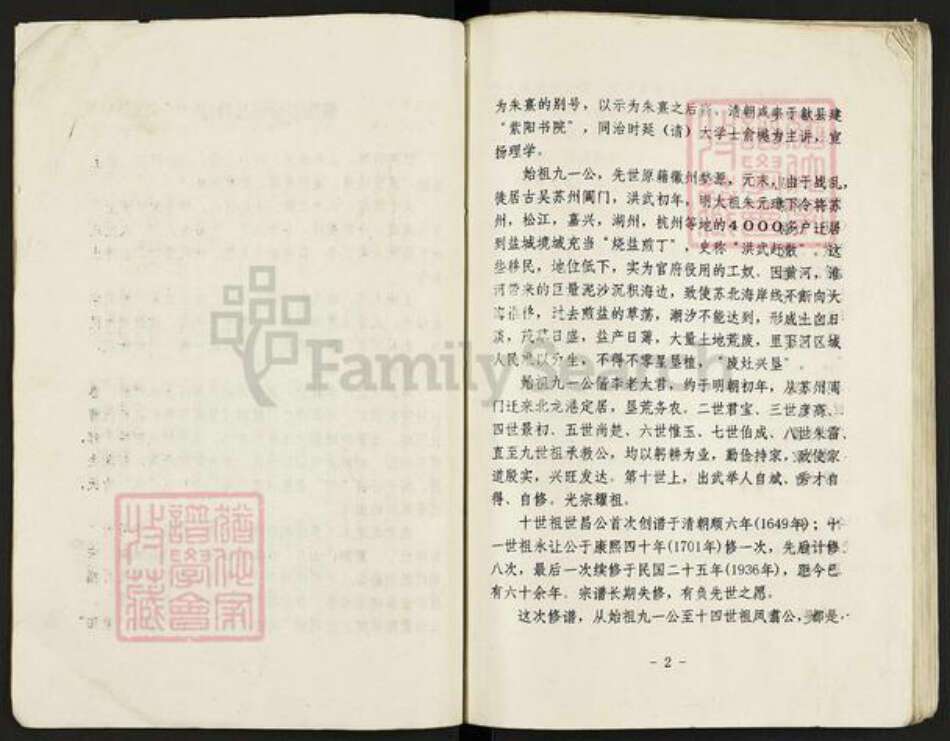 为朱熹的别号，以示为朱熹之后裔。清朝咸丰于歙县建
“紫阳书院”，同治时延（请）大学士俞樾为主讲，宣
扬理学。
始祖九一公，先世原籍徽州婺源，元末，由于战乱，
徙居古吴苏州阊门，洪武初年，明太祖朱元璋下令将苏
州，松江，嘉兴，湖州，杭州等地的4000多户迁居
到盐城境域充当“烧盐煎丁”，史称“洪武赶散”。这
些移民，地位低下，实为官府役用的工奴。因黄河，淮
河带来的巨量泥沙沉积海边，致使苏北海岸线不断向大
海推移，过去煎盐的草荡，潮汐不能达到，形成土卤日
淡，日盛，盐产日薄，大量土地荒废，里下河区域
人民难以为生，不得不零星垦植，“废灶兴垦”
始祖九一公偕李老太君，约于明朝初年，从苏州阊
门迁来北龙港定居，垦荒务农。二世君宝、三世彦高、
四世景初、五世尚楚、六世惟玉、七世伯成、八世朱雷、
直至九世祖承教公，均以躬耕为业，勤俭持家，致使家
道殷实，兴旺发达。第十世上，出武举人自斌、秀才自
得、自修。光宗耀祖。
十世祖世昌公首次创谱于清朝顺六年(1649年)；十
一世祖永让公于康熙四十年(1701年)修一次，先后计修
八次，最后一次续修于民国二十五年(1936年)，距今已
有六十余年。宗谱长期失修，有负先世之愿。
这次修谱，从始祖九一公至十四世祖凤翥公，都是
- 2 -
FamilySearch